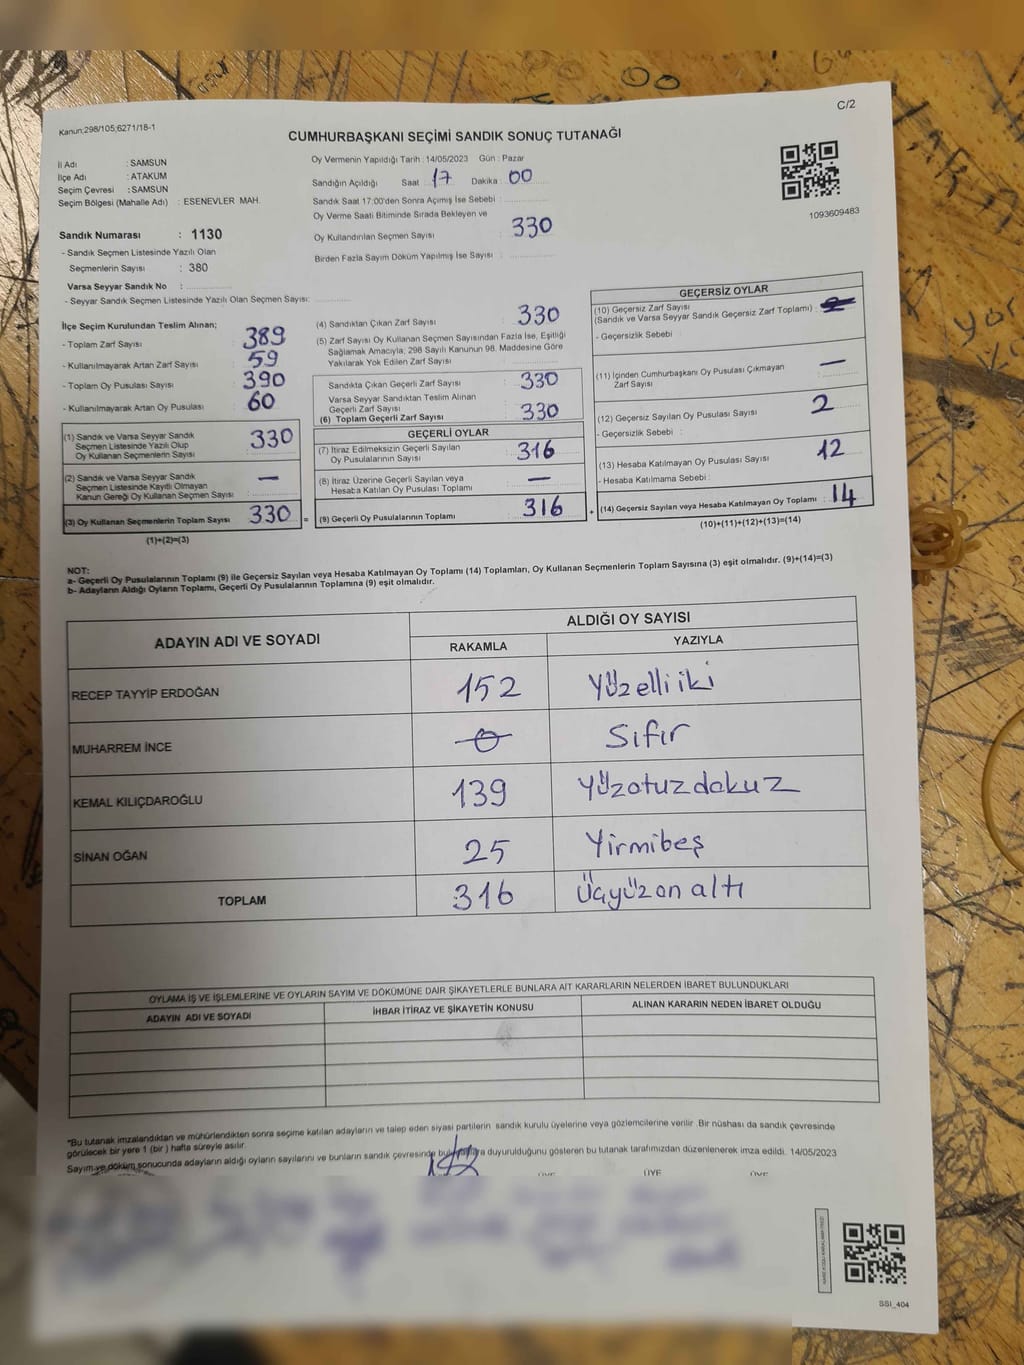 C/2
Kanun;298/105;6271/18-1
CUMHURBAŞKANI SEÇİMİ SANDIK SONUÇ TUTANAĞI
İl Adı : SAMSUN
İlçe Adı : ATAKUM
Seçim Çevresi : SAMSUN
Seçim Bölgesi (Mahalle Adı) : ESENEVLER MAH.
Sandık Numarası : 1130
- Sandık Seçmen Listesinde Yazılı Olan
Seçmenlerin Sayısı : 380
Varsa Seyyar Sandık No :
- Seyyar Sandık Seçmen Listesinde Yazılı Olan Seçmen Sayısı:
Oy Vermenin Yapıldığı Tarih : 14/05/2023 Gün : Pazar
Sandığın Açıldığı Saat : 17 Dakika : 00
Sandık Saat 17:00'den Sonra Açımış İse Sebebi :
Oy Verme Saati Bitiminde Sırada Bekleyen ve
Oy Kullandırılan Seçmen Sayısı : 330
Birden Fazla Sayım Döküm Yapılmış İse Sayısı :
1093609483
İlçe Seçim Kurulundan Teslim Alınan;
- Toplam Zarf Sayısı : 389
- Kullanılmayarak Artan Zarf Sayısı : 59
- Toplam Oy Pusulası Sayısı : 390
- Kullanılmayarak Artan Oy Pusulası : 60
(1) Sandık ve Varsa Seyyar Sandık
Seçmen Listesinde Yazılı Olup
Oy Kullanan Seçmenlerin Sayısı : 330
(2) Sandık ve Varsa Seyyar Sandık
Seçmen Listesinde Kayıtlı Olmayan
Kanun Gereği Oy Kullanan Seçmen Sayısı : —
(3) Oy Kullanan Seçmenlerin Toplam Sayısı : 330
(1)+(2)=(3)
=
(4) Sandıktan Çıkan Zarf Sayısı : 330
(5) Zarf Sayısı Oy Kullanan Seçmen Sayısından Fazla İse, Eşitliği
Sağlamak Amacıyla; 298 Sayılı Kanunun 98. Maddesine Göre
Yakılarak Yok Edilen Zarf Sayısı :
Sandıkta Çıkan Geçerli Zarf Sayısı : 330
Varsa Seyyar Sandıktan Teslim Alınan
Geçerli Zarf Sayısı :
(6) Toplam Geçerli Zarf Sayısı : 330
GEÇERLİ OYLAR
(7) İtiraz Edilmeksizin Geçerli Sayılan
Oy Pusulalarının Sayısı : 316
(8) İtiraz Üzerine Geçerli Sayılan veya
Hesaba Katılan Oy Pusulası Toplamı : —
(9) Geçerli Oy Pusulalarının Toplamı : 316
+
GEÇERSİZ OYLAR
(10) Geçersiz Zarf Sayısı
(Sandık ve Varsa Seyyar Sandık Geçersiz Zarf Toplamı) :
- Geçersizlik Sebebi :
(11) İçinden Cumhurbaşkanı Oy Pusulası Çıkmayan
Zarf Sayısı : —
(12) Geçersiz Sayılan Oy Pusulası Sayısı : 2
- Geçersizlik Sebebi :
(13) Hesaba Katılmayan Oy Pusulası Sayısı : 12
- Hesaba Katılmama Sebebi :
(14) Geçersiz Sayılan veya Hesaba Katılmayan Oy Toplamı : 14
(10)+(11)+(12)+(13)=(14)
NOT:
a- Geçerli Oy Pusulalarının Toplamı (9) ile Geçersiz Sayılan veya Hesaba Katılmayan Oy Toplamı (14) Toplamları, Oy Kullanan Seçmenlerin Toplam Sayısına (3) eşit olmalıdır. (9)+(14)=(3)
b- Adayların Aldığı Oyların Toplamı, Geçerli Oy Pusulalarının Toplamına (9) eşit olmalıdır.
ADAYIN ADI VE SOYADI
ALDIĞI OY SAYISI
RAKAMLA YAZIYLA
RECEP TAYYİP ERDOĞAN 152 Yüzelliiki
MUHARREM İNCE 0 Sıfır
KEMAL KILIÇDAROĞLU 139 Yüzotuzdokuz
SİNAN OĞAN 25 Yirmibeş
TOPLAM 316 Üçyüzonaltı
OYLAMA İŞ VE İŞLEMLERİNE VE OYLARIN SAYIM VE DÖKÜMÜNE DAİR ŞİKAYETLERLE BUNLARA AİT KARARLARIN NELERDEN İBARET BULUNDUKLARI
ADAYIN ADI VE SOYADI İHBAR İTİRAZ VE ŞİKAYETİN KONUSU ALINAN KARARIN NEDEN İBARET OLDUĞU
*Bu tutanak imzalandıktan ve mühürlendikten sonra seçime katılan adayların ve talep eden siyasi partilerin sandık kurulu üyelerine veya gözlemcilerine verilir. Bir nüshası da sandık çevresinde
görülecek bir yere 1 (bir) hafta süreyle asılır.
Sayım ve döküm sonucunda adayların aldığı oyların sayılarını ve bunların sandık çevresinde duyurulduğunu gösteren bu tutanak tarafımızdan düzenlenerek imza edildi. 14/05/2023
ÜYE ÜYE ÜYE
SSI_404